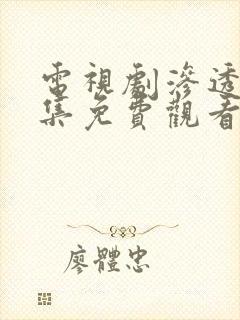 電視劇滲透
集免費觀看
廖體忠